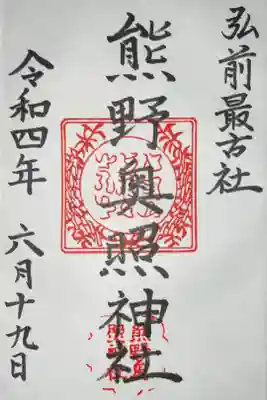 弘前最古社
熊野奥照神社
令和四年 六月十九日